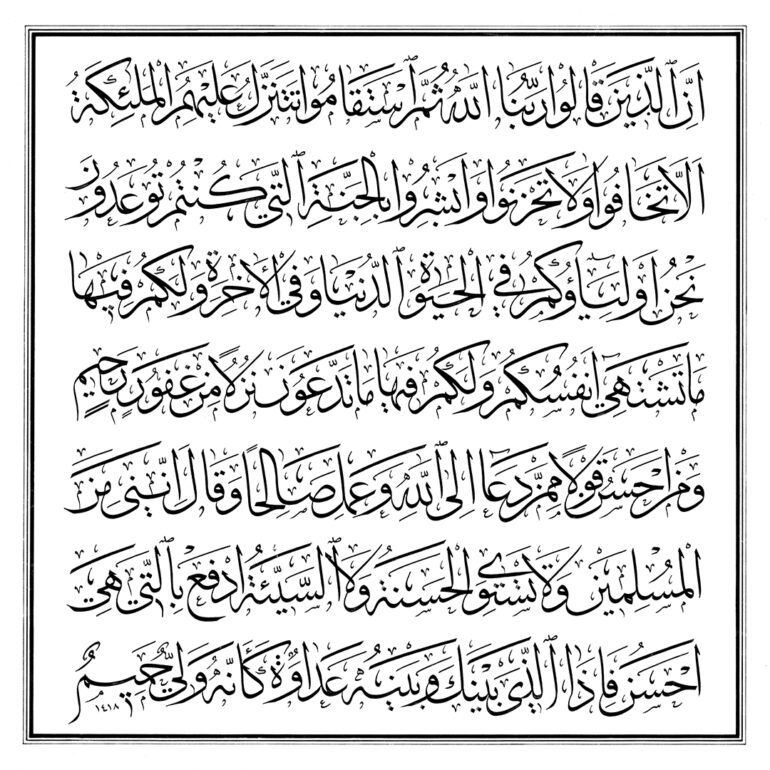 اِنَّ الَّذِينَ قَالُوا رَبُّنَا اللّٰهُ ثُمَّ اسْتَقَامُوا تَتَنَزَّلُ عَلَيْهِمُ الْمَلٰئِكَةُ
اَلَّا تَخَافُوا وَلَا تَحْزَنُوا وَاَبْشِرُوا بِالْجَنَّةِ الَّتِي كُنْتُمْ تُوعَدُونَ
نَحْنُ اَوْلِيَاۤؤُكُمْ فِي الْحَيٰوةِ الدُّنْيَا وَفِي الْاٰخِرَةِ وَلَكُمْ فِيهَا
مَا تَشْتَهِۤي اَنْفُسُكُمْ وَلَكُمْ فِيهَا مَا تَدَّعُونَ نُزُلًا مِنْ غَفُورٍ رَحِيمٍ
وَمَنْ اَحْسَنُ قَوْلًا مِمَّنْ دَعَاۤ اِلَى اللّٰهِ وَعَمِلَ صَالِحًا وَقَالَ اِنَّنِي مِنَ
الْمُسْلِمِينَ وَلَا تَسْتَوِي الْحَسَنَةُ وَلَا السَّيِّئَةُ اِدْفَعْ بِالَّتِي هِيَ
اَحْسَنُ فَاِذَا الَّذِي بَيْنَكَ وَبَيْنَهُ عَدَاوَةٌ كَاَنَّهُ وَلِيٌّ حَمِيمٌ
١٤١٨